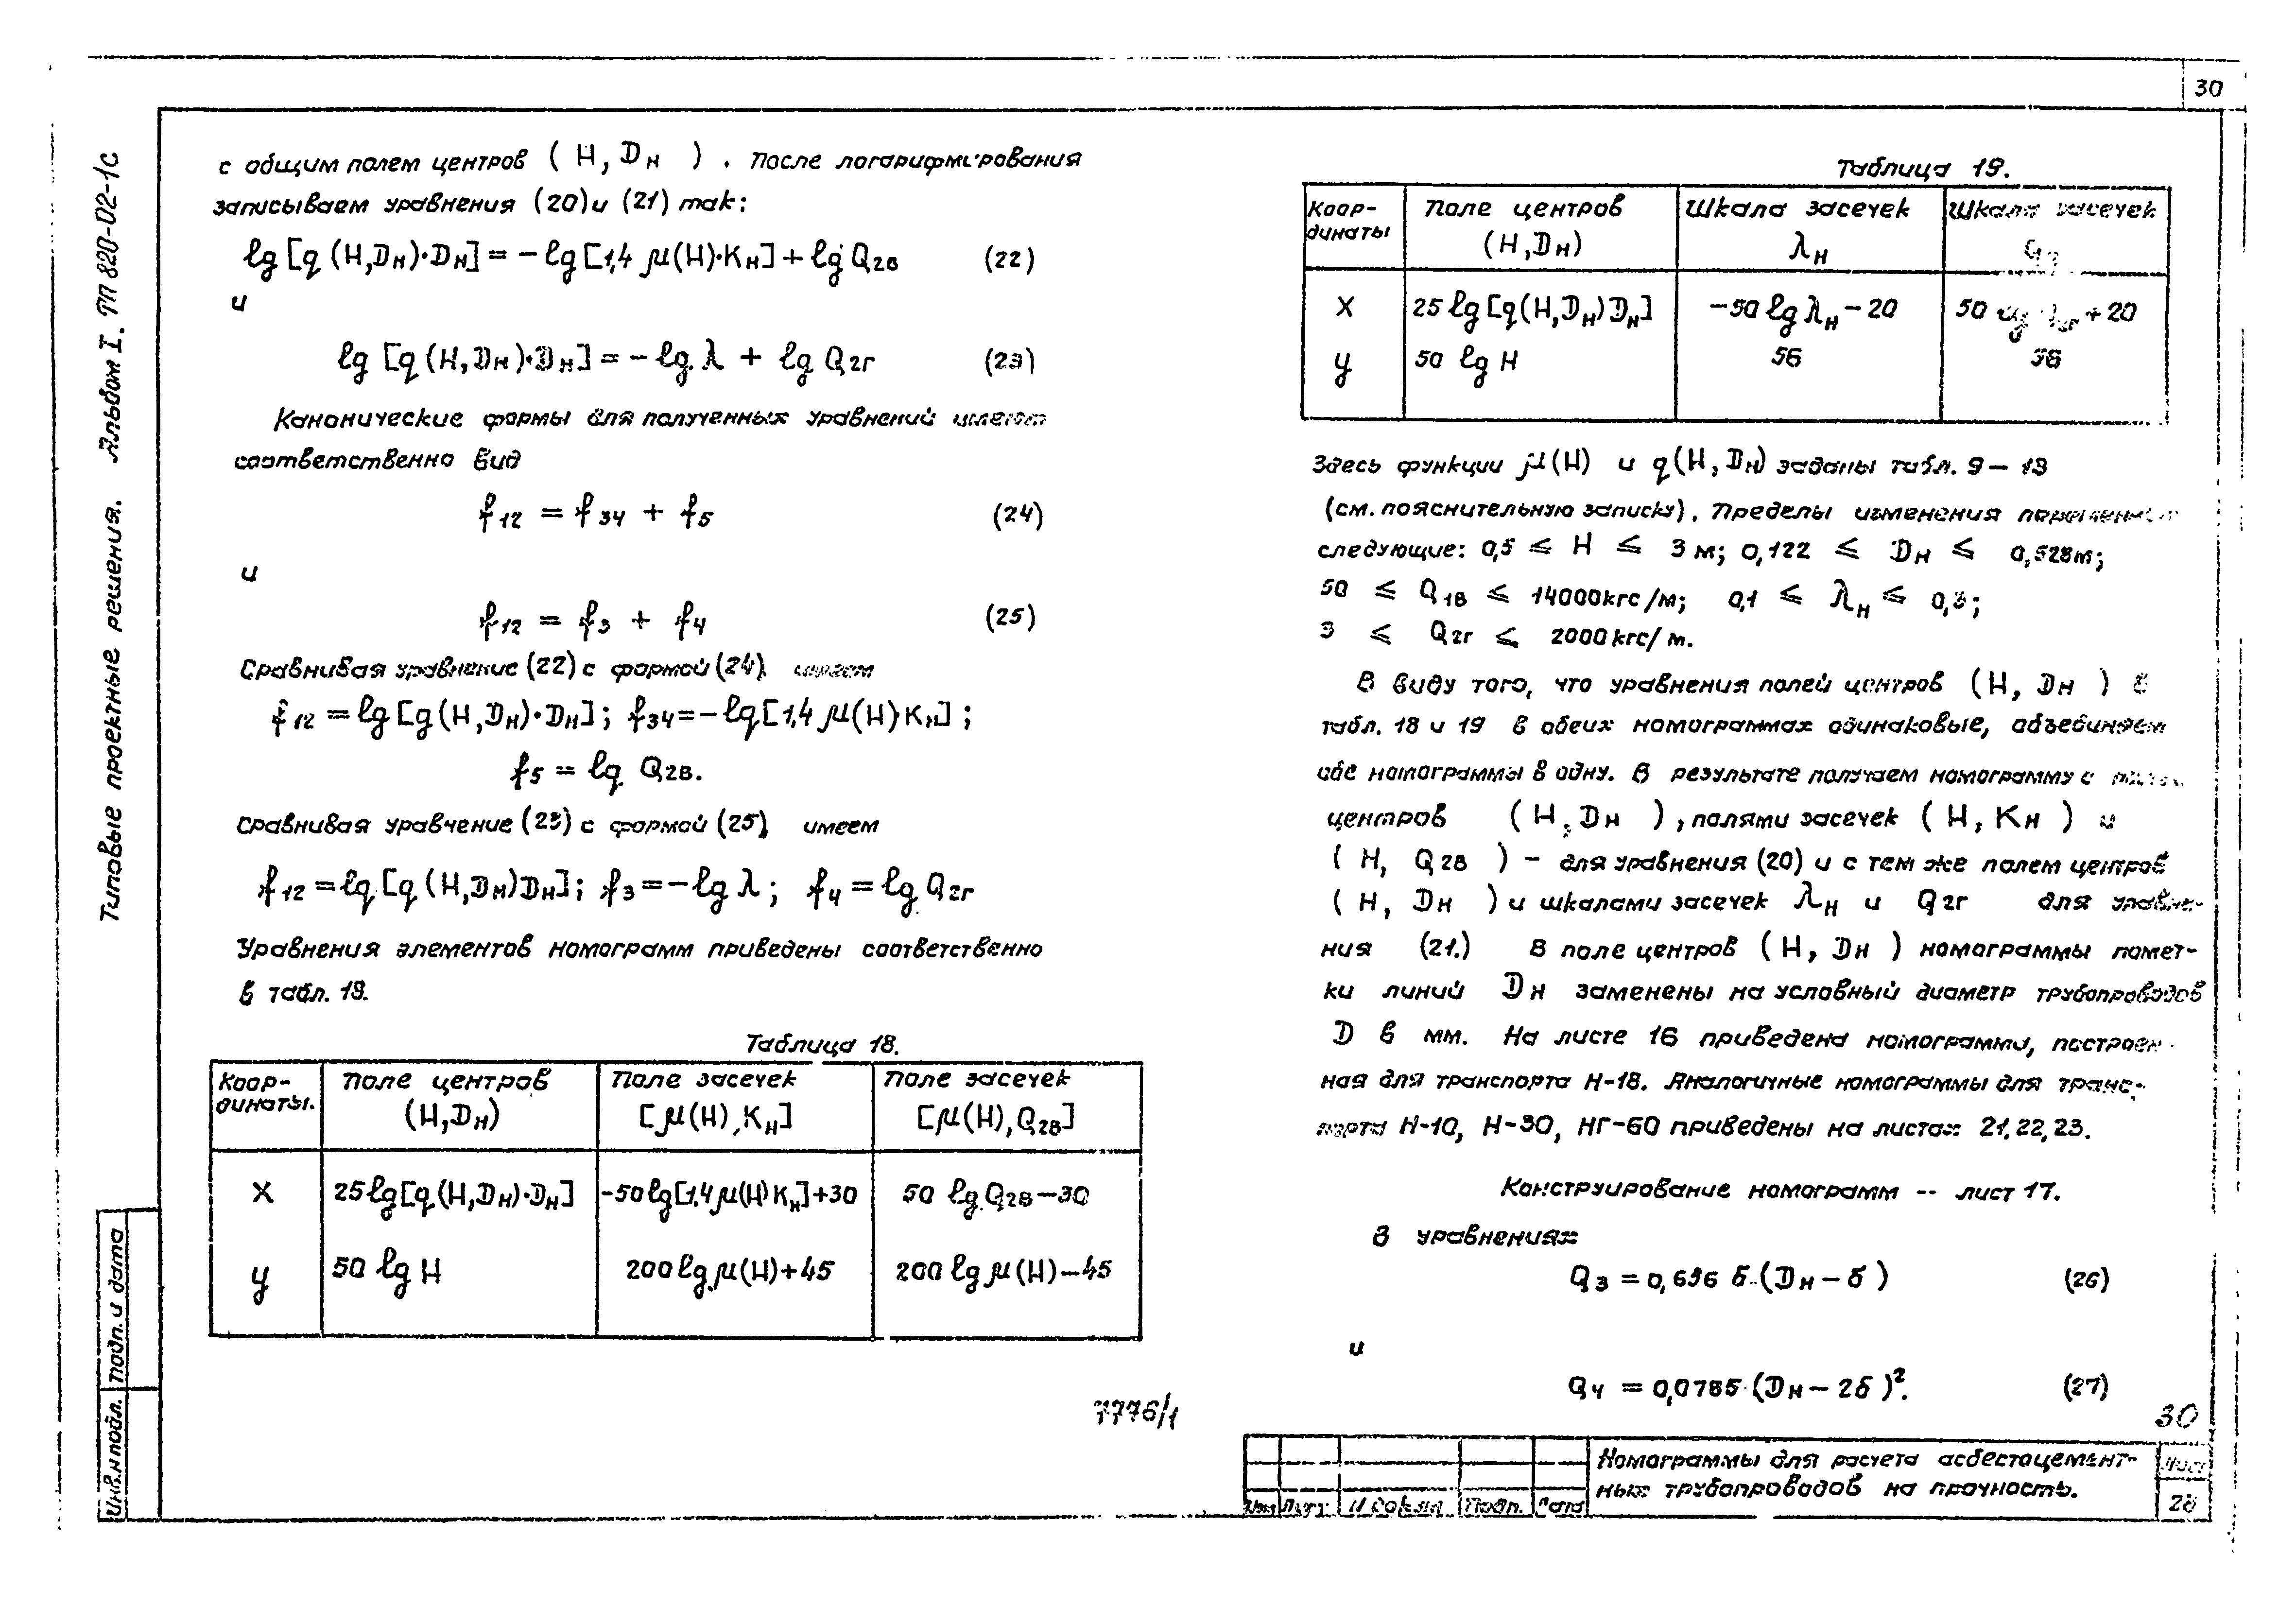 30
Типовые проектные решения. Альбом I. ТП 820-02-1с
с общим полем центров ( H, Dн ) . После логарифмирования
записываем уравнения (20) и (21) так:
lg [q (H,Dн)·Dн] = - lg [1,4 μ(H)·Kн] + lg Q2в (22)
и
lg [q (H,Dн)·Dн] = - lg λ + lg Q2г (23)
Канонические формы для полученных уравнений имеют
соответственно вид
f12 = f34 + f5 (24)
и
f12 = f3 + f4 (25)
Сравнивая уравнение (22) с формой (24), имеем
f12 = lg [g (H,Dн)·Dн] ; f34 = - lg [1,4 μ(H) Kн] ;
f5 = lg Q2в.
Сравнивая уравнение (23) с формой (25), имеем
f12 = lg [q (H,Dн) Dн] ; f3 = - lg λ ; f4 = lg Q2г
Уравнения элементов номограмм приведены соответственно
в табл. 19.
Таблица 18.
Коор- Поле центров Поле засечек Поле засечек
динаты. (H,Dн) [μ(H),Kн] [μ(H),Q2в]
x 25 lg [q (H,Dн)·Dн] -50 lg [1,4 μ(H) Kн] +30 50 lg Q2в - 30
y 50 lg H 200 lg μ(H) + 45 200 lg μ(H) - 45
7776/1
Таблица 19.
Коор- Поле центров Шкала засечек Шкала засечек
динаты (H,Dн) λн
x 25 lg [q (H,Dн) Dн] -50 lg λн - 20 50 + 20
y 50 lg H 56
Здесь функции μ(H) и q (H, Dн) заданы табл. 9 – 13
(см. пояснительную записку). Пределы изменения
следующие: 0,5 ≤ H ≤ 3 м; 0,122 ≤ Dн ≤ 0,528м;
50 ≤ Q1в ≤ 14000кгс/м; 0,1 ≤ λн ≤ 0,3;
3 ≤ Q2г ≤ 2000 кгс/м.
В виду того, что уравнения полей центров ( H, Dн ) в
табл. 18 и 19 в обеих номограммах одинаковые, объединяем
обе номограммы в одну. В результате получаем номограмму с
центров ( H, Dн ), полями засечек ( H, Kн ) и
( H, Q2в ) – для уравнения (20) и с тем же полем центров
( H, Dн ) и шкалами засечек λн и Q2г для уравне-
ния (21.) В поле центров ( H, Dн ) номограммы помет-
ки линий Dн заменены на условный диаметр трубопроводов
D в мм. На листе 16 приведена номограмма, построен-
ная для транспорта Н-18. Аналогичные номограммы для транс-
порта Н-10, Н-30, НГ-60 приведены на листах 21, 22, 23.
Конструирование номограмм -- лист 17.
В уравнениях
Q3 = 0,696 δ·(Dн - δ) (26)
и
Q4 = 0,0785·(Dн - 2δ)². (27)
30
Номограммы для расчета асбестоцемент-
ных трубопроводов на прочность.
Лист
28
Изм Лист N докум Подп. Дата
Инв.N подл. Подп. и дата